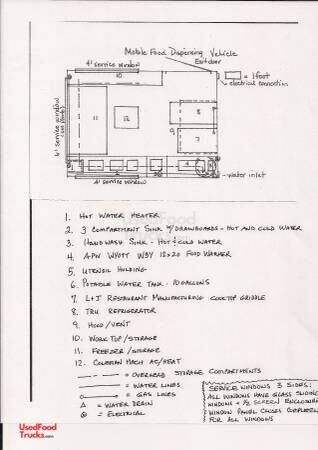 Mobile Food Dispensing Vehicle
4' service window
Exit door
= 1 foot
electrical connection
10
6' service window
11
12
8
9
7
4
4' service window
water inlet
1. HOT WATER HEATER
2. 3 COMPARTMENT SINK W/DRAINBOARDS - HOT AND COLD WATER
3. HANDWASH SINK - HOT & COLD WATER
4. APW WYOTT W3V 12x20 FOOD WARMER
5. UTENSIL HOLDING
6. POTABLE WATER TANK - 10 GALLONS
7. L+J RESTAURANT MANUFACTURING COOKTOP GRIDDLE
8. TRU REFRIGERATOR
9. HOOD/VENT
10. WORK TOP/STORAGE
11. FREEZER/STORAGE
12. COLEMAN MACH AC/HEAT
= OVERHEAD STORAGE COMPARTMENTS
= WATER LINES
= GAS LINES
△ = WATER DRAIN
= ELECTRICAL
SERVICE WINDOWS 3 SIDES:
ALL WINDOWS HAVE GLASS SLIDING
WINDOWS + 1/2 SCREEN ENCLOSURE
WINDOW PANEL CLOSES
FOR ALL WINDOWS
UsedFood
Trucks.com
UsedFood
Trucks